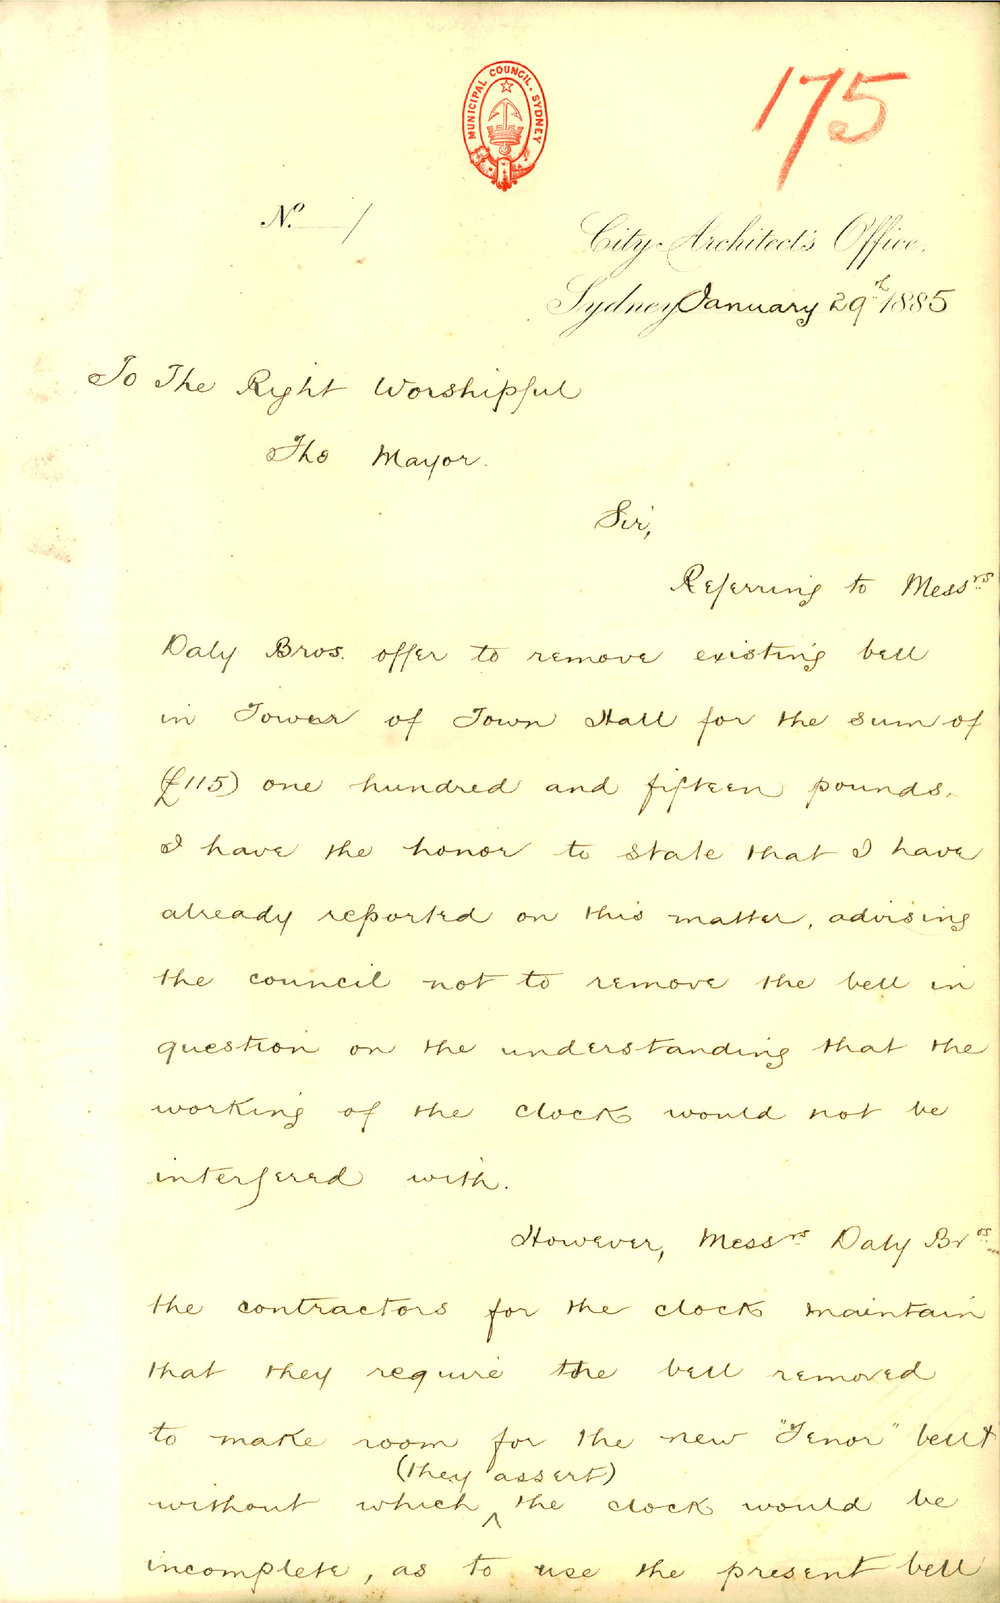 MUNICIPAL COUNCIL. SYDNEY
175
No. /
City Architect's Office.
Sydney January 29th 1885
To The Right Worshipful
The Mayor.
Sir,
Referring to Messrs
Daly Bros. offer to remove existing bell
in Tower of Town Hall for the sum of
(£115) one hundred and fifteen pounds.
I have the honor to state that I have
already reported on this matter, advising
the council not to remove the bell in
question on the understanding that the
working of the clock would not be
interfered with.
However, Messrs Daly Bros
the contractors for the clock maintain
that they require the bell removed
to make room for the new "Tenor" bell
(they assert)
without which ^ the clock would be
incomplete, as to use the present bell